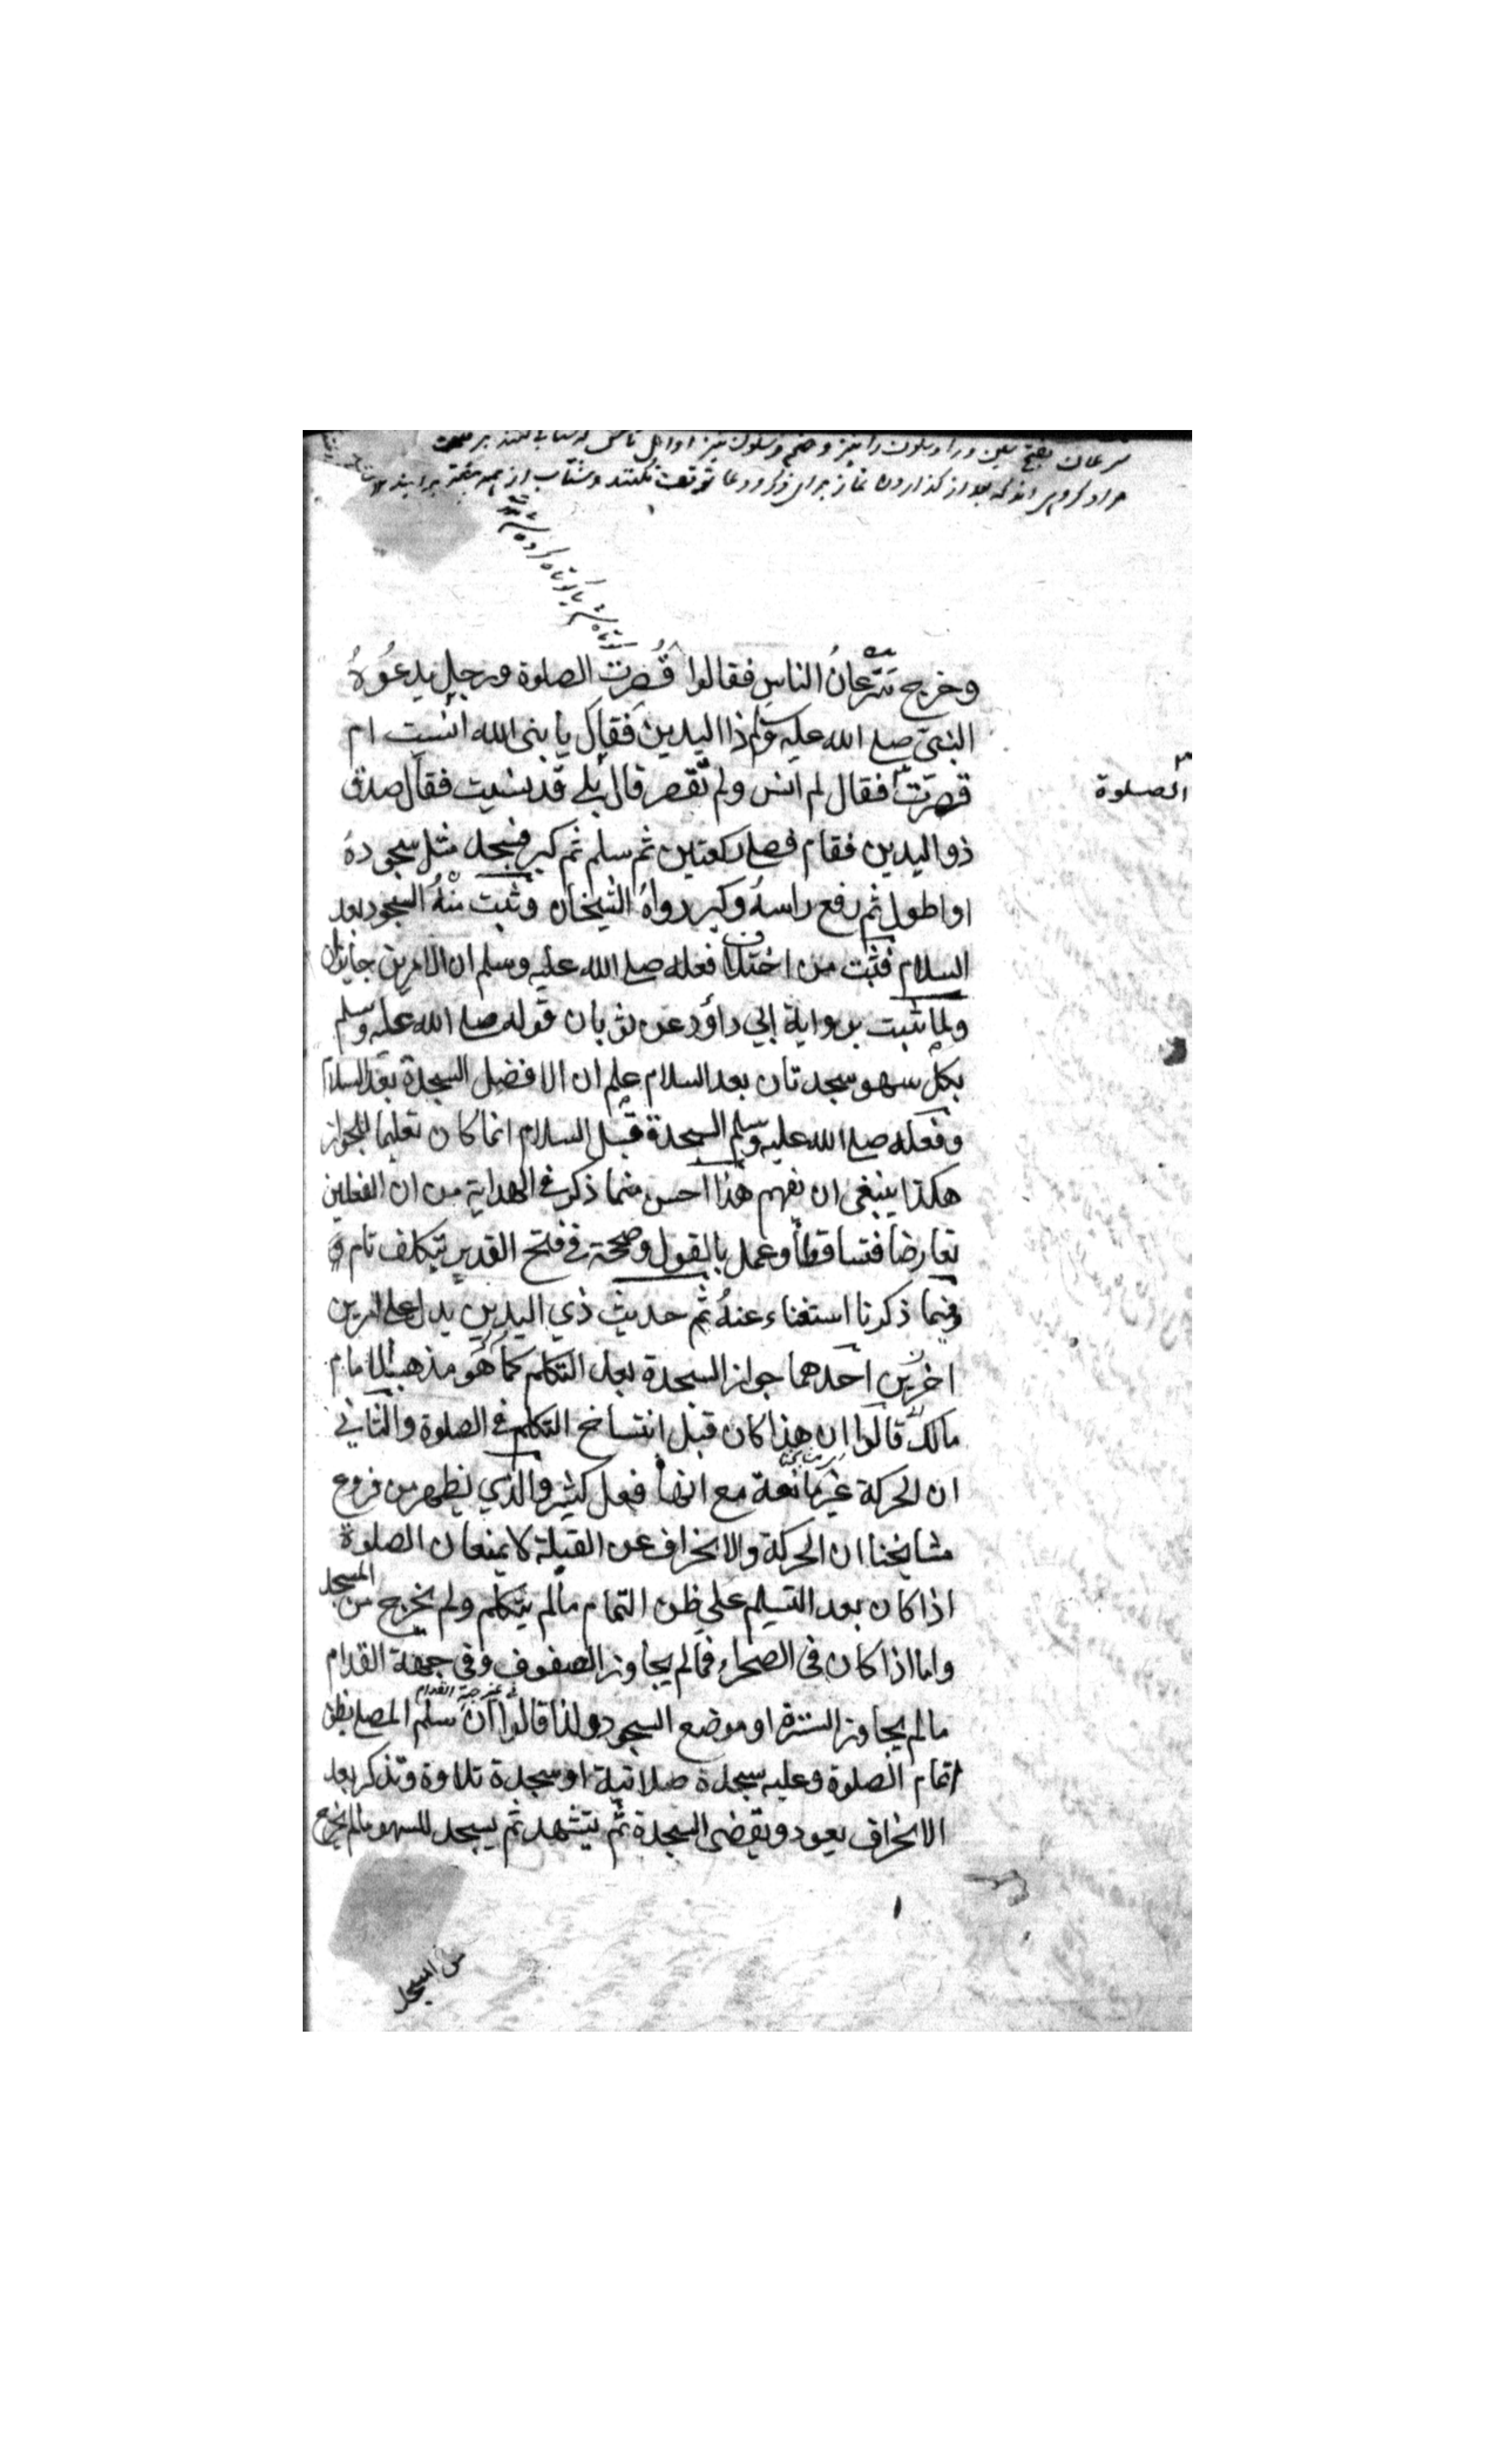 سرعان بفتح سین و را و سکون را نیز و ضم و سکون نیز اوائل
مراد گروهی اند که بعد از گذاردن نماز برای ذکر و دعا توقف نکنند و شتاب از همه
کوتاه شد یا کوتاه کرده شد
وخرج سَرَعانُ الناسِ فقالوا قُصِرَت الصلوة ورجل يدعُوهُ
النبي صلے الله عليه وسلم ذا اليدين فقال يا نبى الله انسيت ام
قصرت فقال لم انس ولم تقصر قال بلى قد نسيت فقال صدق
الصلوة
ذو اليدين فقام فصلے ركعتين ثم سلم ثم كبر فسجد مثل سجوده
او اطول ثم رفع راسهُ وكبر رواهُ الشيخان وثبت منهُ السجود بعد
السلام فثبت من اختلاف فعله صلے الله عليه وسلم ان الامرين جايزان
ولما ثبت برواية ابي داؤد عن ثوبان قوله صلے الله عليه وسلم
بكل سهو سجدتان بعد السلام علم ان الافضل السجدة بعد السلام
وفعله صلے الله عليه وسلم السجدة قبل السلام انما كان تعليما للجواز
هكذا ينبغى ان يفهم هذا احسن مما ذكر فے الهداية من ان الفعلين
تعارضا فتساقطا وعمل بالقول وصححه فے فتح القدير بتكلف تام و
فيما ذكرنا استغناء عنهُ ثم حديث ذي اليدين يدل على امرين
اخرين احدهما جواز السجدة بعد التكلم كما هو مذهب الامام
مالك قالوا ان هذا كان قبل انتساخ التكلم فے الصلوة والثاني
ان الحركة غير مانعة مع انها فعل كثير والذي يظهر من فروع
مشايخنا ان الحركة والانحراف عن القبلة لا يمنعان الصلوة
اذا كان بعد التسليم على ظن التمام ما لم يتكلم ولم يخرج من المسجد
واما اذا كان فى الصحراء فما لم يجاوز الصفوف وفى جهة القدام
فے غير جهة القدام
ما لم يجاوز السترة او موضع السجود ولذا قالوا ان سلم المصلے بظن
اتمام الصلوة وعليه سجدة صلاتية او سجدة تلاوة وتذكر بعد
الانحراف يعود ويقضى السجدة ثم يتشهد ثم يسجد للسهو ما لم يخرج
من المسجد